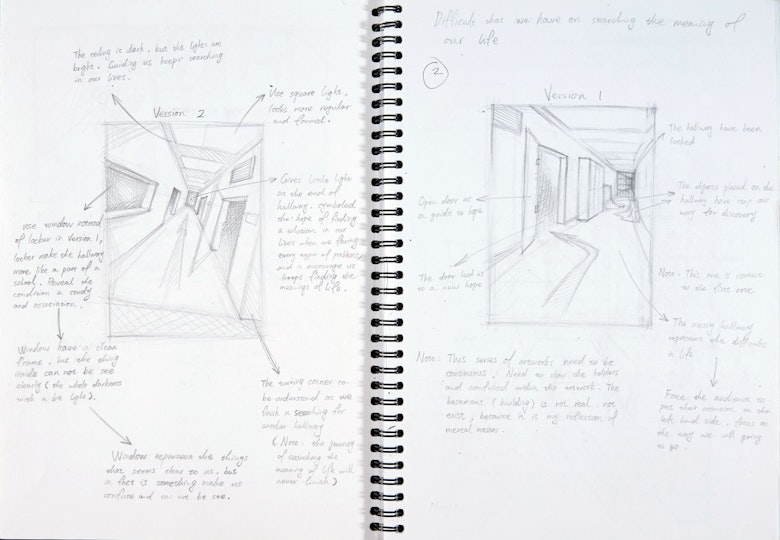 The ceiling is dark, but the lights are
bright. Guiding us keeps searching
in our lives.
Version 2
Use square light,
looks more regular
and formal.
Gives little light
as the end of
hallway, symboled
the hope of finding
a solution in our
lives when we facing
every type of problems,
and encourage us
keeps finding the
meanings of life.
use window instead
of locker in Version 1,
locker make the hallway
more like a part of a
school. Reveal the
condition a study
and association.
Window have a clean
frame, but the thing
inside can not be see
clearly (the whole darkness
with a bit light).
Window represent the things
that seems clear to us, but
in fact is something make us
confuse and can not be see.
The turning corner can
be understand as we
finish a searching for
another hallway
(Note: the journey
of searching the
meaning of life will
never finish)
Difficults that we have on searching the meaning of
our life
2
Version 1
The hallway have been
locked
The objects placed on the
hallway have our
way for discovery
Open door as
a guide to hope
The door lead us
to a new hope
Note: This one is connect
to the first one
The messy hallway
represent the difficulties
in life
Note: This series of artworks need to be
continuous. Need to show the
and confused within the artwork. The
basement (building) is not real, not
exist, because it is my reflection of
mental
Force the audience to
put their attention on the
left hand side, focus on
the way we will going
to go.